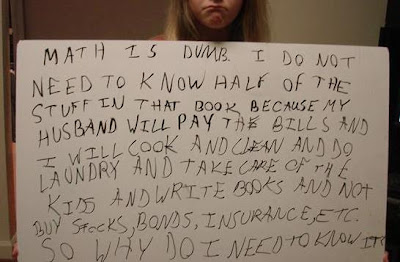 MATH IS DUMB. I DO NOT
NEED TO KNOW HALF OF THE
STUFF IN THAT BOOK BECAUSE MY
HUSBAND WILL PAY THE BILLS AND
I WILL COOK AND CLEAN AND DO
LAUNDRY AND TAKE CARE OF THE
KIDS AND WRITE BOOKS AND NOT
BUY STOCKS, BONDS, INSURANCE, ETC.
SO WHY DO I NEED TO KNOW IT?